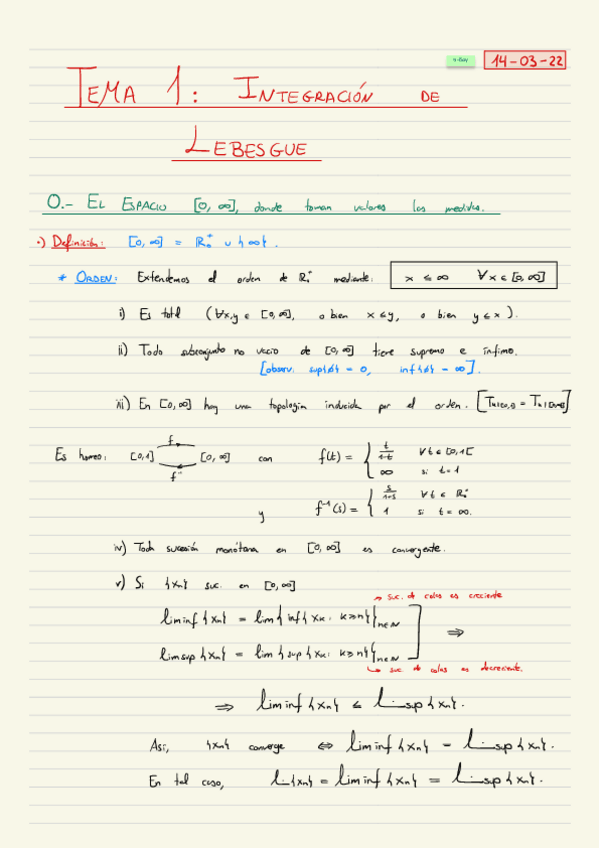 14-03-22
TEMA 1: INTEGRACIÓN DE
LEBESGUE
0.- EL ESPACIO [0, ∞], donde toman valores las medidas.
·) Definición: [0, ∞] = ℝ₀⁺ ∪ {∞}.
* ORDEN: Extendemos el orden de ℝ₀⁺ mediante: x ≤ ∞ ∀x ∈ [0, ∞]
i) Es total (∀x,y ∈ [0, ∞], o bien x ≤ y, o bien y ≤ x).
ii) Todo subconjunto no vacío de [0, ∞] tiene supremo e ínfimo.
[observ. sup{∅} = 0, inf{∅} = ∞].
iii) En [0, ∞] hay una topología inducida por el orden.
Es homeo: [0,1] f [0, ∞] con f(t) = { t/(1-t) ∀t ∈ [0,1[
f⁻¹ ∞ si t=1
y f⁻¹(s) = { s/(1+s) ∀t ∈ ℝ₀⁺
1 si t = ∞.
iv) Toda sucesión monótona en [0, ∞] es convergente.
v) Si {xn} suc. en [0, ∞]
→ suc. de colas es creciente
lim inf {xn} = lim { inf {xk : k ≥ n} }n∈ℕ
⇒
lim sup {xn} = lim { sup {xk : k ≥ n} }n∈ℕ
↳ suc de colas es decreciente.
⇒ lim inf {xn} ≤ lim sup {xn}.
Así, {xn} converge ⇔ lim inf {xn} = lim sup {xn}.
En tal caso, lim {xn} = lim inf {xn} = lim sup {xn}.